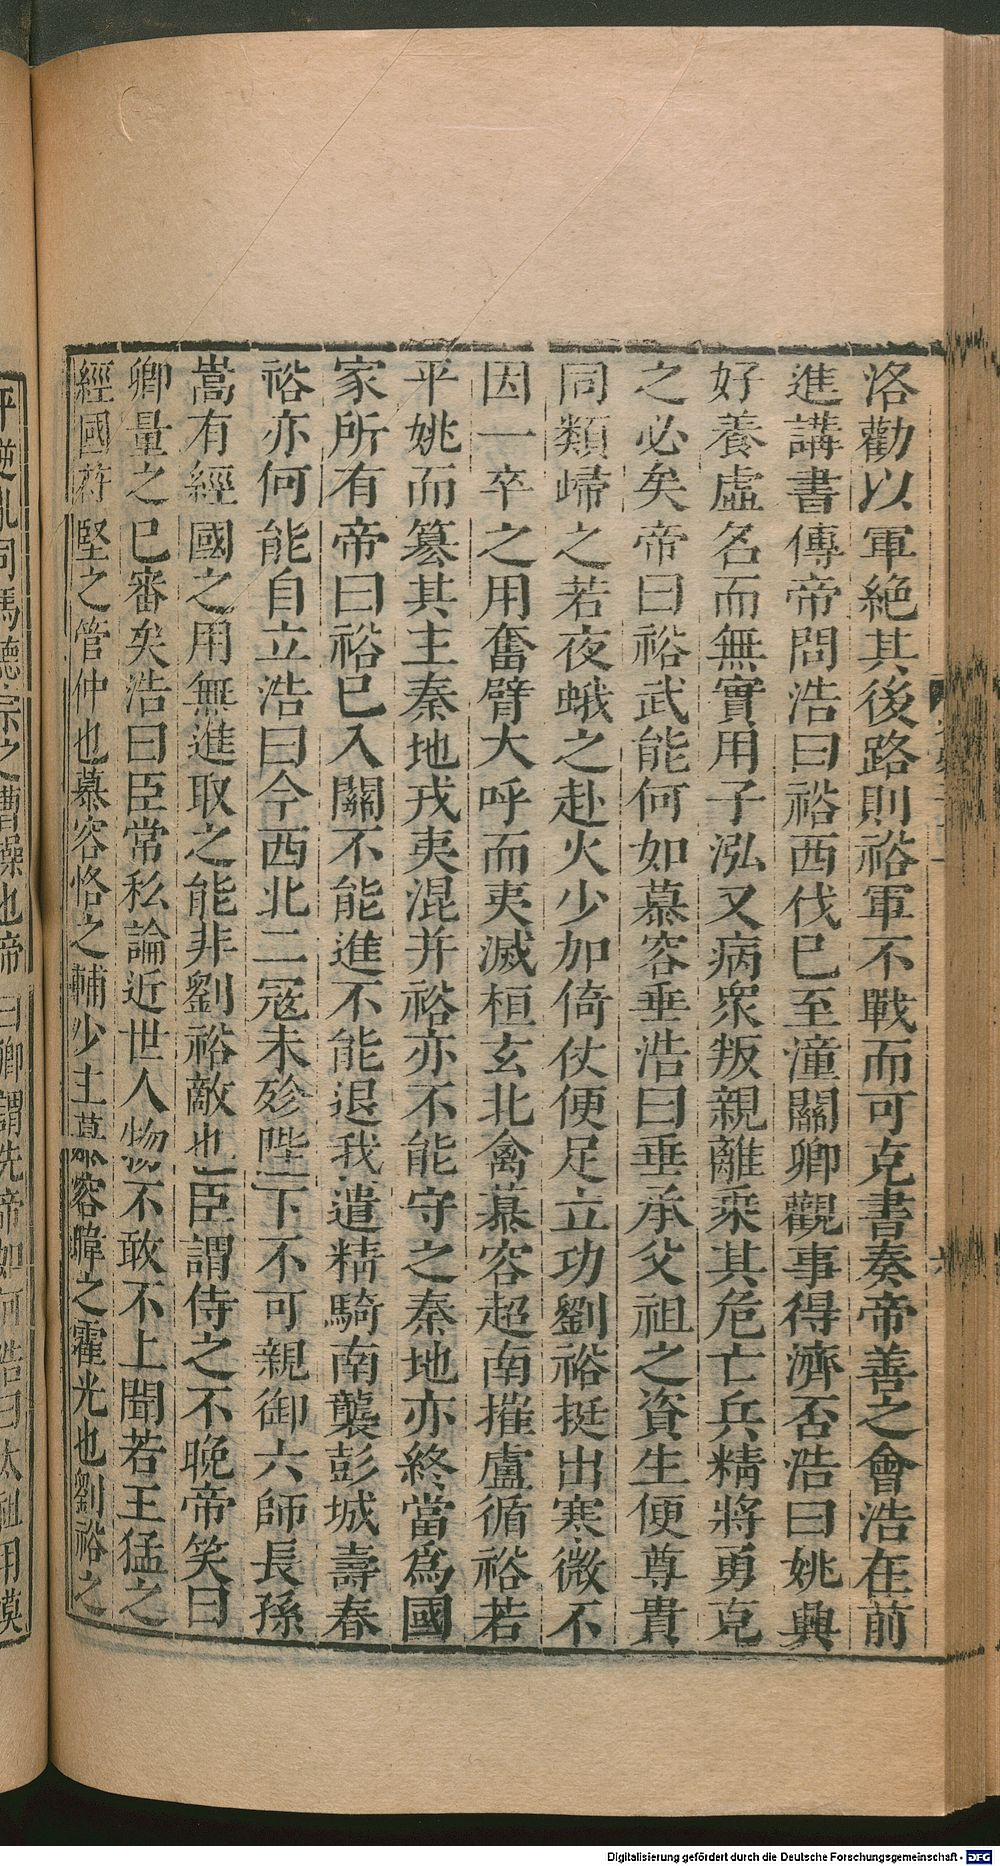 洛勸以軍絶其後路則裕軍不戰而可克書奏帝善之會浩在前
進講書傳帝問浩曰裕西伐已至潼關卿觀事得濟否浩曰姚興
好養虛名而無實用子泓又病衆叛親離乘其危亡兵精將勇克
之必矣帝曰裕武能何如慕容垂浩曰垂承父祖之資生便尊貴
同類歸之若夜蛾之赴火少加倚仗便足立功劉裕挺出寒微不
因一卒之用奮臂大呼而夷滅桓玄北禽慕容超南摧盧循裕若
平姚而簒其主秦地戎夷混并裕亦不能守之秦地亦終當為國
家所有帝曰裕已入關不能進不能退我遣精騎南襲彭城壽春
裕亦何能自立浩曰今西北二寇未殄陛下不可親御六師長孫
嵩有經國之用無進取之能非劉裕敵也臣謂侍之不晚帝笑曰
卿量之已審矣浩曰臣常私論近世人物不敢不上聞若王猛之
經國苻堅之管仲也慕容恪之輔少主慕容暐之霍光也劉裕之
平逆亂司馬德宗之曹操也帝曰卿謂先帝如何浩曰太祖用漠
Digitalisierung gefördert durch die Deutsche Forschungsgemeinschaft - DFG